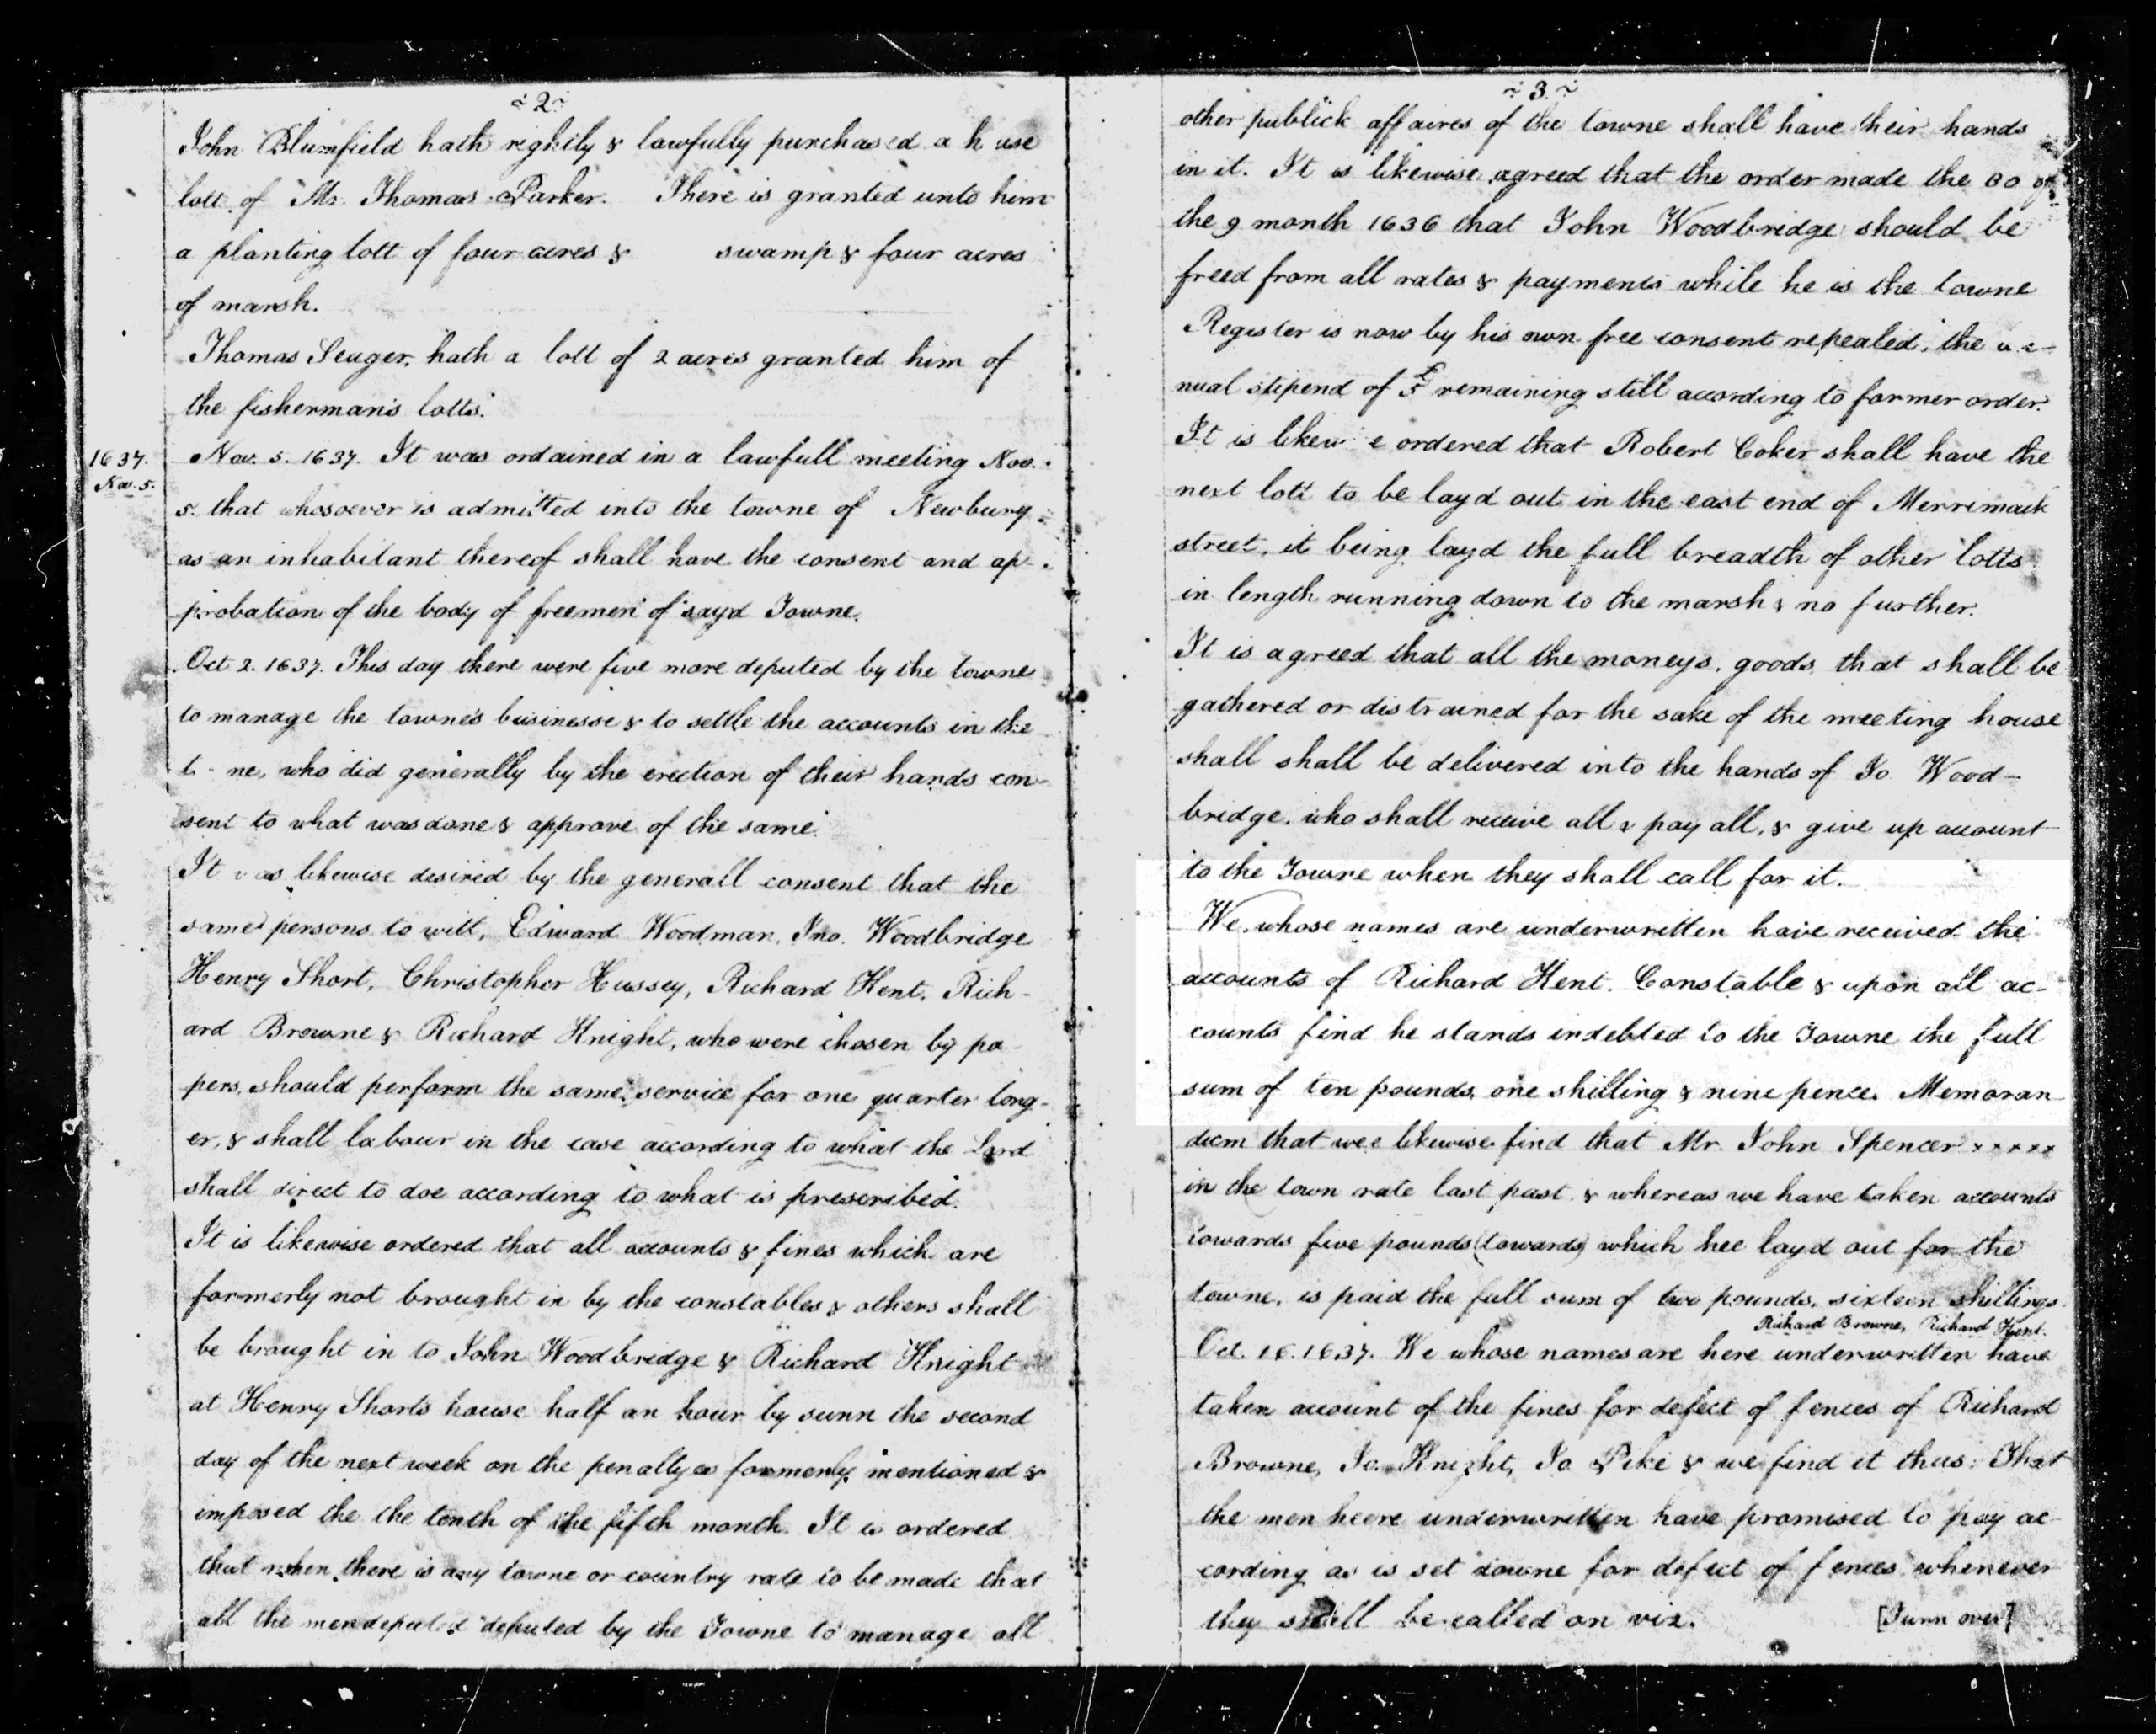 ~ 2 ~
John Blumfield hath rightly & lawfully purchased a h use
lott of Mr. Thomas Parker. There is granted unto him
a planting lott of four acres & swamp & four acres
of marsh.
Thomas Seuger, hath a lott of 2 acres granted him of
the fisherman's lotts.
1637.
Nov. 5.
Nov. 5. 1637. It was ordained in a lawfull meeting Nov.
5. that whosoever is admitted into the towne of Newbury
as an inhabitant thereof shall have the consent and ap-
probation of the body of freemen of sayd Towne.
Oct 2. 1637. This day there were five more deputed by the towne
to manage the towne's businesse & to settle the accounts in the
t - ne, who did generally by the erection of their hands con-
sent to what was done & approve of the same.
It was likewise desired by the generall consent that the
same persons to witt, Edward Woodman, Jno. Woodbridge
Henry Short, Christopher Hussey, Richard Kent, Rich-
ard Browne & Richard Knight, who were chosen by pa-
pers, should perform the same service for one quarter long-
er, & shall labour in the case according to what the Lord
shall direct to doe according to what is prescribed.
It is likewise ordered that all accounts & fines which are
formerly not brought in by the constables & others shall
be brought in to John Woodbridge & Richard Knight
at Henry Shorts house half an hour by sunn the second
day of the next week on the penaltyes formerly mentioned &
imposed the the tenth of the fifth month. It is ordered
that when there is any towne or country rate to be made that
all the men deputed deputed by the Towne to manage all
~ 3 ~
other publick affaires of the towne shall have their hands
in it. It is likewise agreed that the order made the 30 of
the 9 month 1636 that John Woodbridge should be
freed from all rates & payments while he is the towne
Register is now by his own free consent repealed, the
nual stipend of £5 remaining still according to former order.
It is likew e ordered that Robert Coker shall have the
next lott to be layd out in the east end of Merrimack
street, it being layd the full breadth of other lotts
in length running down to the marsh & no further.
It is agreed that all the moneys, goods, that shall be
gathered or distrained for the sake of the meeting house
shall shall be delivered into the hands of Jo Wood-
bridge, who shall receive all & pay all, & give up account
to the Towne when they shall call for it.
We, whose names are underwritten have received the
accounts of Richard Kent. Constable & upon all ac-
counts find he stands indebted to the Towne the full
sum of ten pounds, one shilling & nine pence. Memoran-
dum that wee likewise find that Mr. John Spencer xxxxx
in the town rate last past & whereas we have taken accounts
towards five pounds (towards) which hee layd out for the
towne, is paid the full sum of two pounds, sixteen shillings.
Richard Browne, Richard Kent.
Oct. 16. 1637. We whose names are here underwritten have
taken account of the fines for defect of fences of Richard
Browne, Jo. Knight, Jo Pike & we find it thus: That
the men heere underwritten have promised to pay ac-
cording as is set downe for defect of fences whenever
they shall be called on viz. [Turn over]